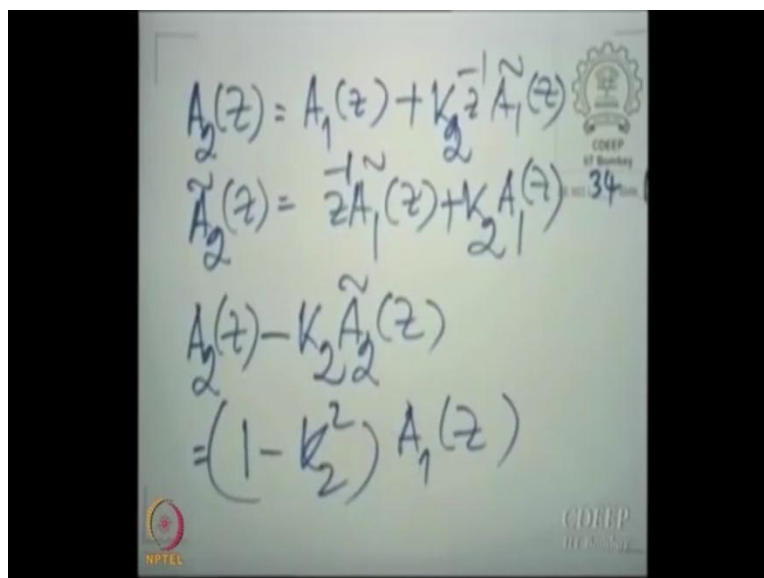 A₂(z) = A₁(z) + K₂ z⁻¹ Ã₁(z)
Ã₂(z) = z⁻¹ Ã₁(z) + K₂ A₁(z)
A₂(z) − K₂ Ã₂(z)
= (1 − K₂²) A₁(z)
CDEEP
IIT Bombay
34
CDEEP
IIT Bombay
NPTEL